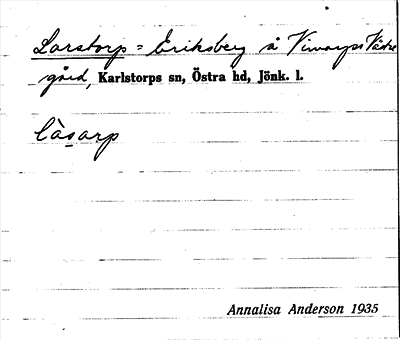 Larstorp = Eriksberg å Vimarps Västre
gård, Karlstorps sn, Östra hd, Jönk. l.
làsarp
Annalisa Anderson 1935